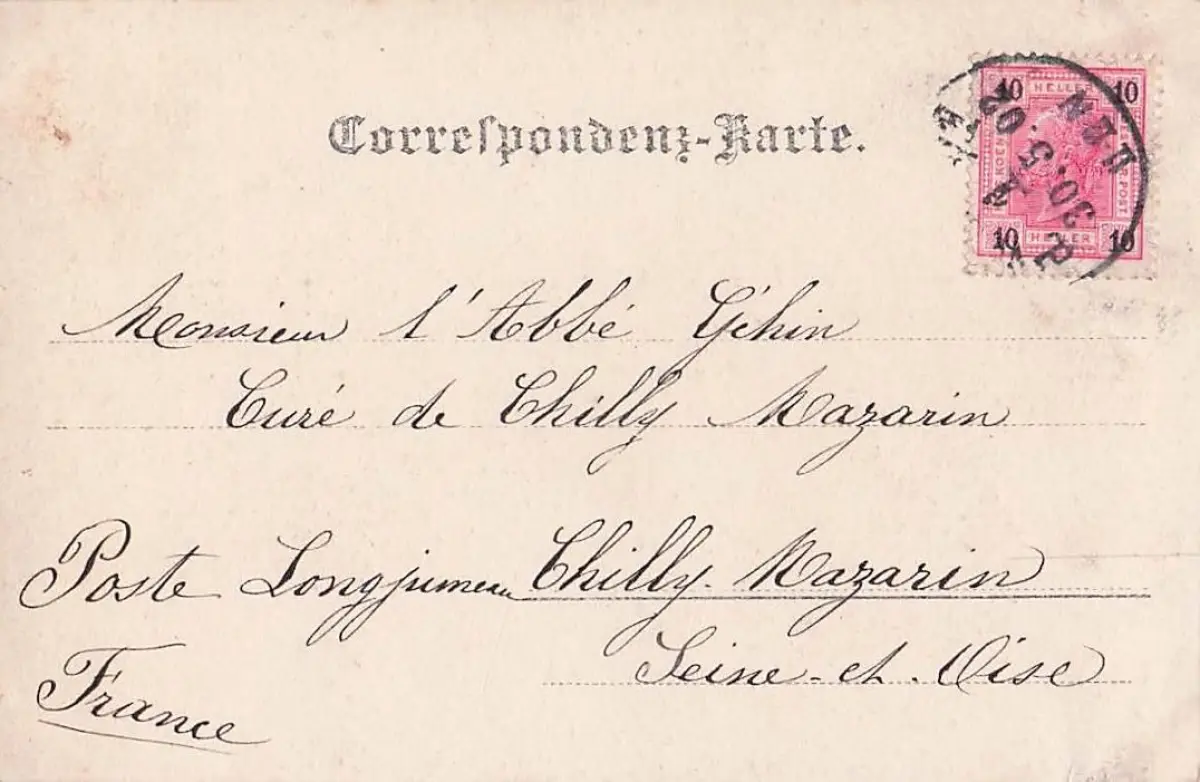 Correspondenz-Karte.
10 HELLER 10
10 HELLER 10
30.5.02
Monsieur l'Abbé Géhin
Curé de Chilly Mazarin
Poste Longjumeau Chilly-Mazarin
Seine-et-Oise
France